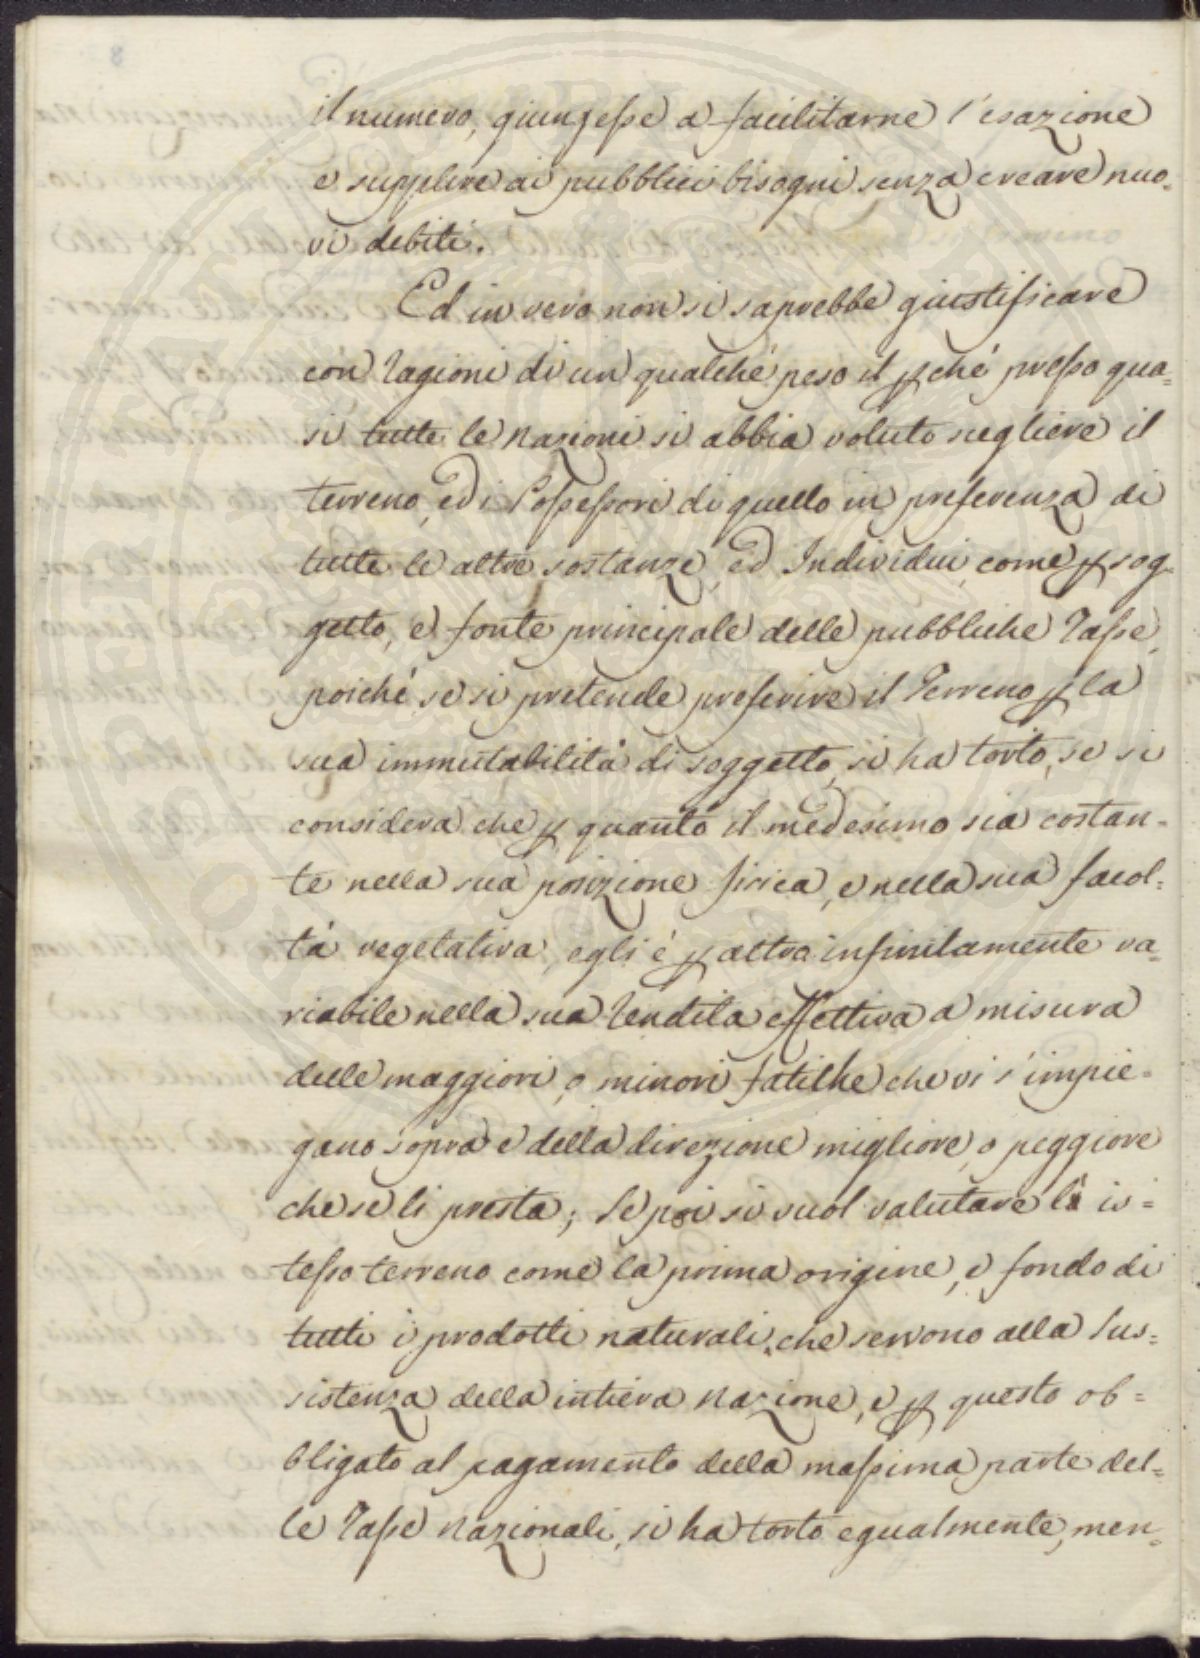 il numero, giungesse a facilitarne l'esazione
e supplire ai pubblici bisogni senza creare nuo=
vi debiti.
Ed in vero non si saprebbe giustificare
con ragioni di un qualche peso il pché presso qua=
si tutte le nazioni si abbia voluto scegliere il
terreno, ed i Possessori di quello in preferenza di
tutte le altre sostanze, ed Individui, come p sog=
getto, e fonte principale delle pubbliche Tasse,
poiché se si pretende preferire il Terreno p la
sua immutabilità di soggetto, si ha torto, se si
considera che p quanto il medesimo sia costan=
te nella sua posizione fisica, e nella sua facol=
tà vegetativa, egli è p altro infinitamente va=
riabile nella sua rendita effettiva a misura
delle maggiori, o minori fatiche che vi s'impie=
gano sopra e della direzione migliore, o peggiore
che se li presta; Se poi si vuol valutare lo is=
tesso terreno come la prima origine, e fondo di
tutti i prodotti naturali, che servono alla sus=
sistenza della intiera nazione, e p questo ob=
bligato al pagamento della massima parte del=
le Tasse nazionali, si ha torto egualmente, men=